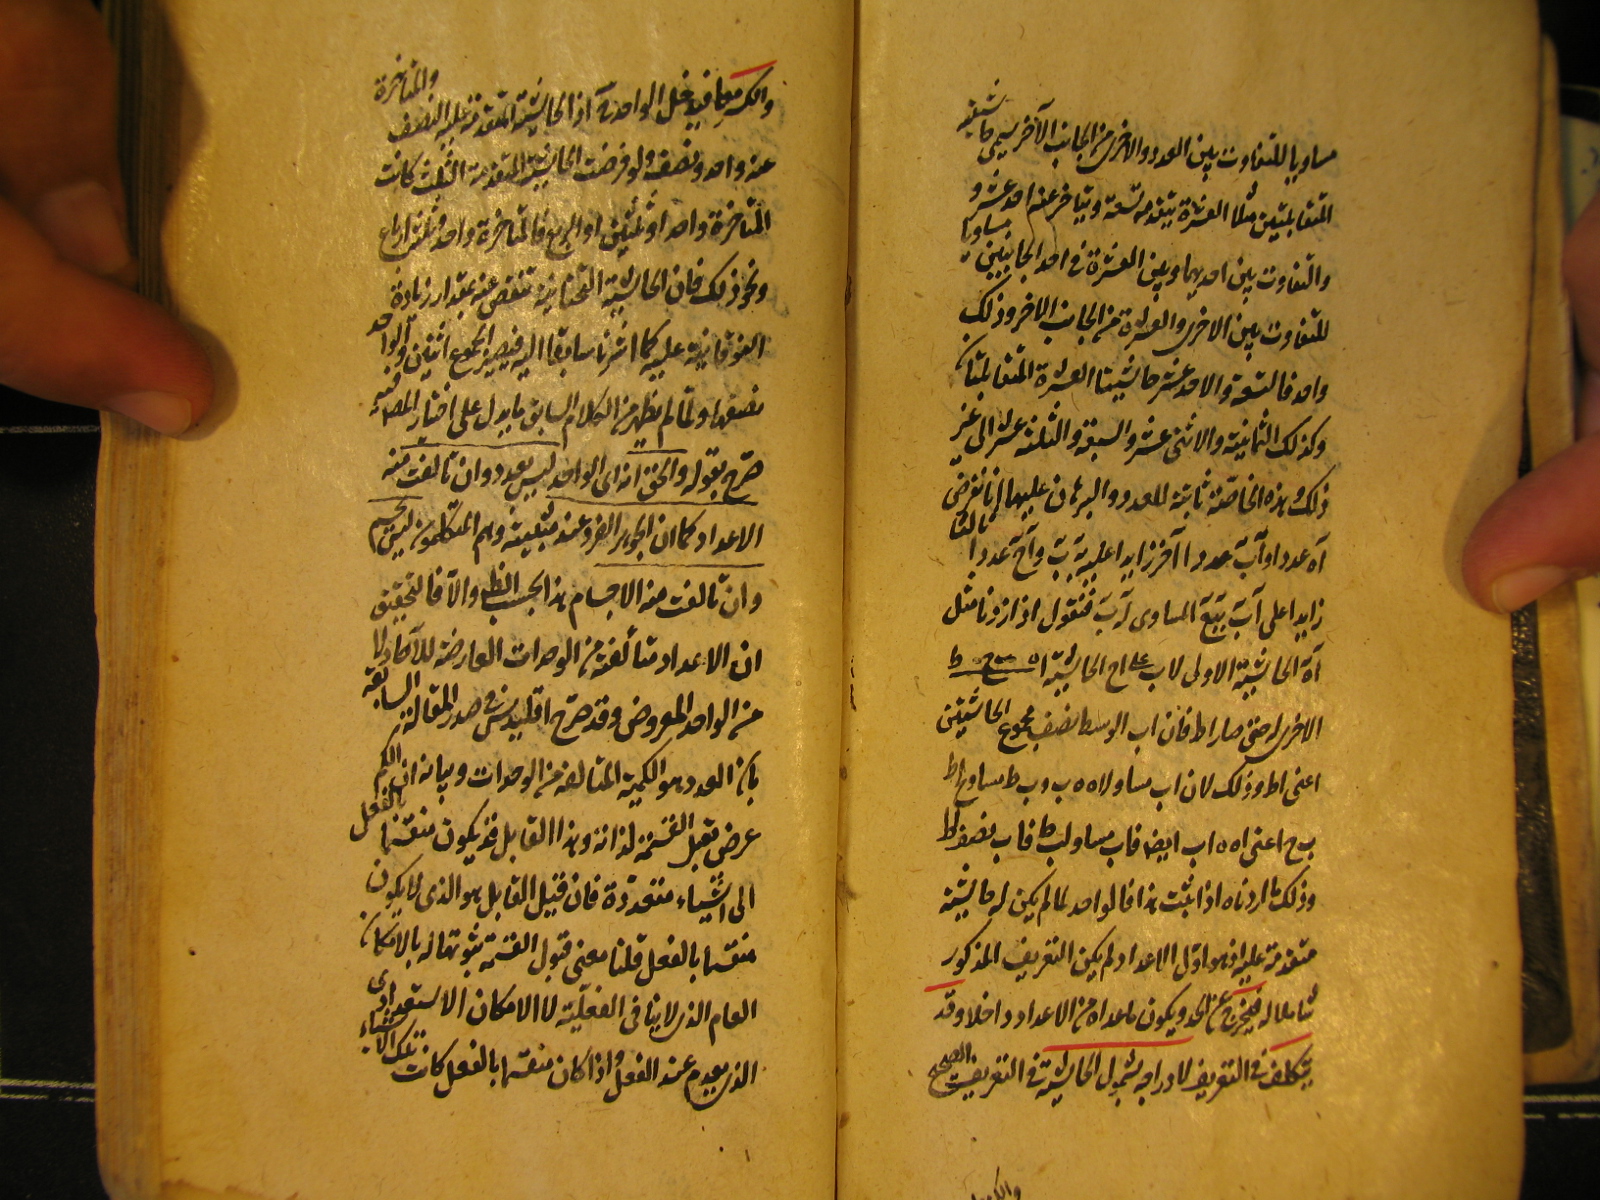 مساويا للتفاوت بين العدد والاخرى من الجانب الآخر يسمى حاشيتيه
المتقابلتين مثلا العشرة يتقدمه تسعة ويتاخر عنه احد عشر و
والتفاوت بين احديهما وبين العشرة في احد الجانبين مساويا
للتفاوت بين الاخرى والعشرة من الجانب الاخر وذلك
واحد فالتسعة والاحد عشر حاشيتا العشرة المتقابلتان
وكذلك الثمانية والاثنى عشر والسبعة والثلثة عشر الى غير
ذلك وهذه الخاصة ثابتة للعدد والبرهان عليها انا نفرض
آه عددا و آب عددا آخر زايدا عليه بـ ب و آح عددا ثالثا
زايدا على آب بـ المساوى لـ ه ب فنقول اذا زدنا مثل
آه الحاشية الاولى لاب على اح الحاشية
الاخرى حتى صار اط فان اب الوسط نصف مجموع الحاشيتين
اعنى اط وذلك لان اب مساو لاه ه ب و ب ط مساو ح ط
ب ح اعنى اه ه ب ايضا فاب مساو لب ط فاب نصف اط
وذلك ما اردناه اذا ثبت هذا فالواحد لما لم يكن له حاشية
متقدمة عليه اذ هو اول الاعداد لم يكن التعريف المذكور
شاملا له فيخرج عن الحد ويكون ما عداه من الاعداد داخلا وقد
يتكلف في التعريف لادراجه بشمول الحاشية في التعريف الصحيح
والكسر معا فيدخل الواحد فيه اذ الحاشية المتقدمة عليه النصف والمتاخرة
عنه واحد ونصف ولو فرضت الحاشية المتقدمة الثلث كانت
المتاخرة واحدا وثلثين او الربع فالمتاخرة واحد وثلثة ارباع
ونحو ذلك فان الحاشية التحتانية تنقص عنه بمقدار زيادة
الفوقانية عليه كما اشرنا سابقا اليه فيصير المجموع اثنين والواحد
نصفها ولما لم يظهر من الكلام السابق ما يدل على اختيار المصنف
صرح بقوله والحق انه اى الواحد ليس بعدد وان تالفت منه
الاعداد كما ان الجوهر الفرد عند مثبتيه وهم المتكلمون ليس بجسم
وان تالفت منه الاجسام هذا بحسب الظ والا فالتحقيق
ان الاعداد متألفة من الوحدات العارضة للآحاد لا
من الواحد المعروض وقد صرح اقليدس في صدر المقالة السابعة
بان العدد هو الكمية المتالفة من الوحدات وبيانه ان الكم
عرض يقبل القسمة لذاته وهذا القابل قد يكون منقسما بالفعل
الى اشياء متعددة فان قيل القابل هو الذى لا يكون
منقسما بالفعل قلنا معنى قبول القسمة ثبوتها له بالامكان
العام الذى لا ينافى الفعلية لا الامكان الاستعدادى
الذى يعدم عند الفعل واذا كان منقسما بالفعل كانت تلك الاشياء